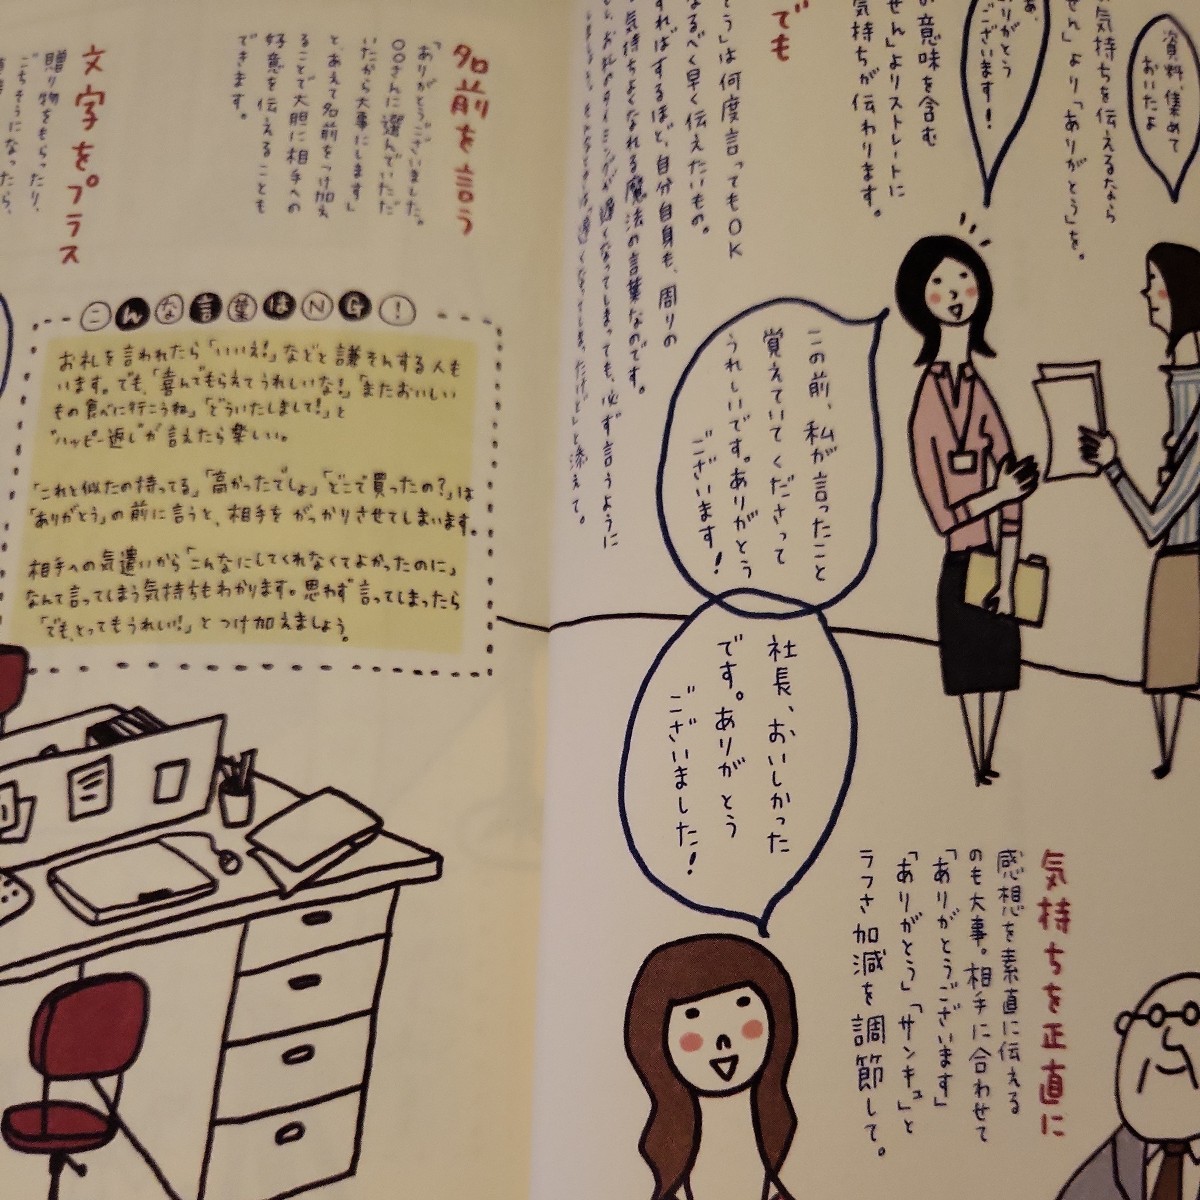 資料、集めて
おいたよ
ありがとう
ございます!
気持ちを伝えるなら
せん」より「ありがとう」を。
の意味を含む
せん」よりストレートに
気持ちが伝わります。
でも
とう」は何度言ってもOK
なるべく早く伝えたいもの。
すればするほど、自分自身も、周りの
気持ちよくなれる魔法の言葉なのです。
お礼のタイミングが遅くなってしまっても、必ず言うように
しましょう。そんなときは「遅くなってしまったけど」と添えて。
この前、私が言ったこと
覚えていてくださって
うれしいです。ありがとう
ございます!
社長、おいしかった
です。ありがとう
ございました!
気持ちを正直に
感想を素直に伝える
のも大事。相手に合わせて
「ありがとうございます」
「ありがとう」「サンキュ」と
ラフさ加減を調節して。
名前を言う
「ありがとうございました。
○○さんに選んでいただ
いたから大事にします」
と、あえて名前をつけ加え
ることで大胆に相手への
好意を伝えることも
できます。
文字をプラス
贈り物をもらったり、
ごちそうになったら、
こんな言葉はNG!
お礼を言われたら「いいえ!」などと謙そんする人も
います。でも、「喜んでもらえてうれしいな!」「またおいしい
もの食べに行こうね」「どういたしまして!」と
"ハッピー返し"が言えたら楽しい。
「これと似たの持ってる」「高かったでしょ」「どこで買ったの?」は
「ありがとう」の前に言うと、相手をがっかりさせてしまいます。
相手への気遣いから「こんなにしてくれなくてよかったのに」
なんて言ってしまう気持ちもわかります。思わず言ってしまったら
「でも、とってもうれしい!」とつけ加えましょう。